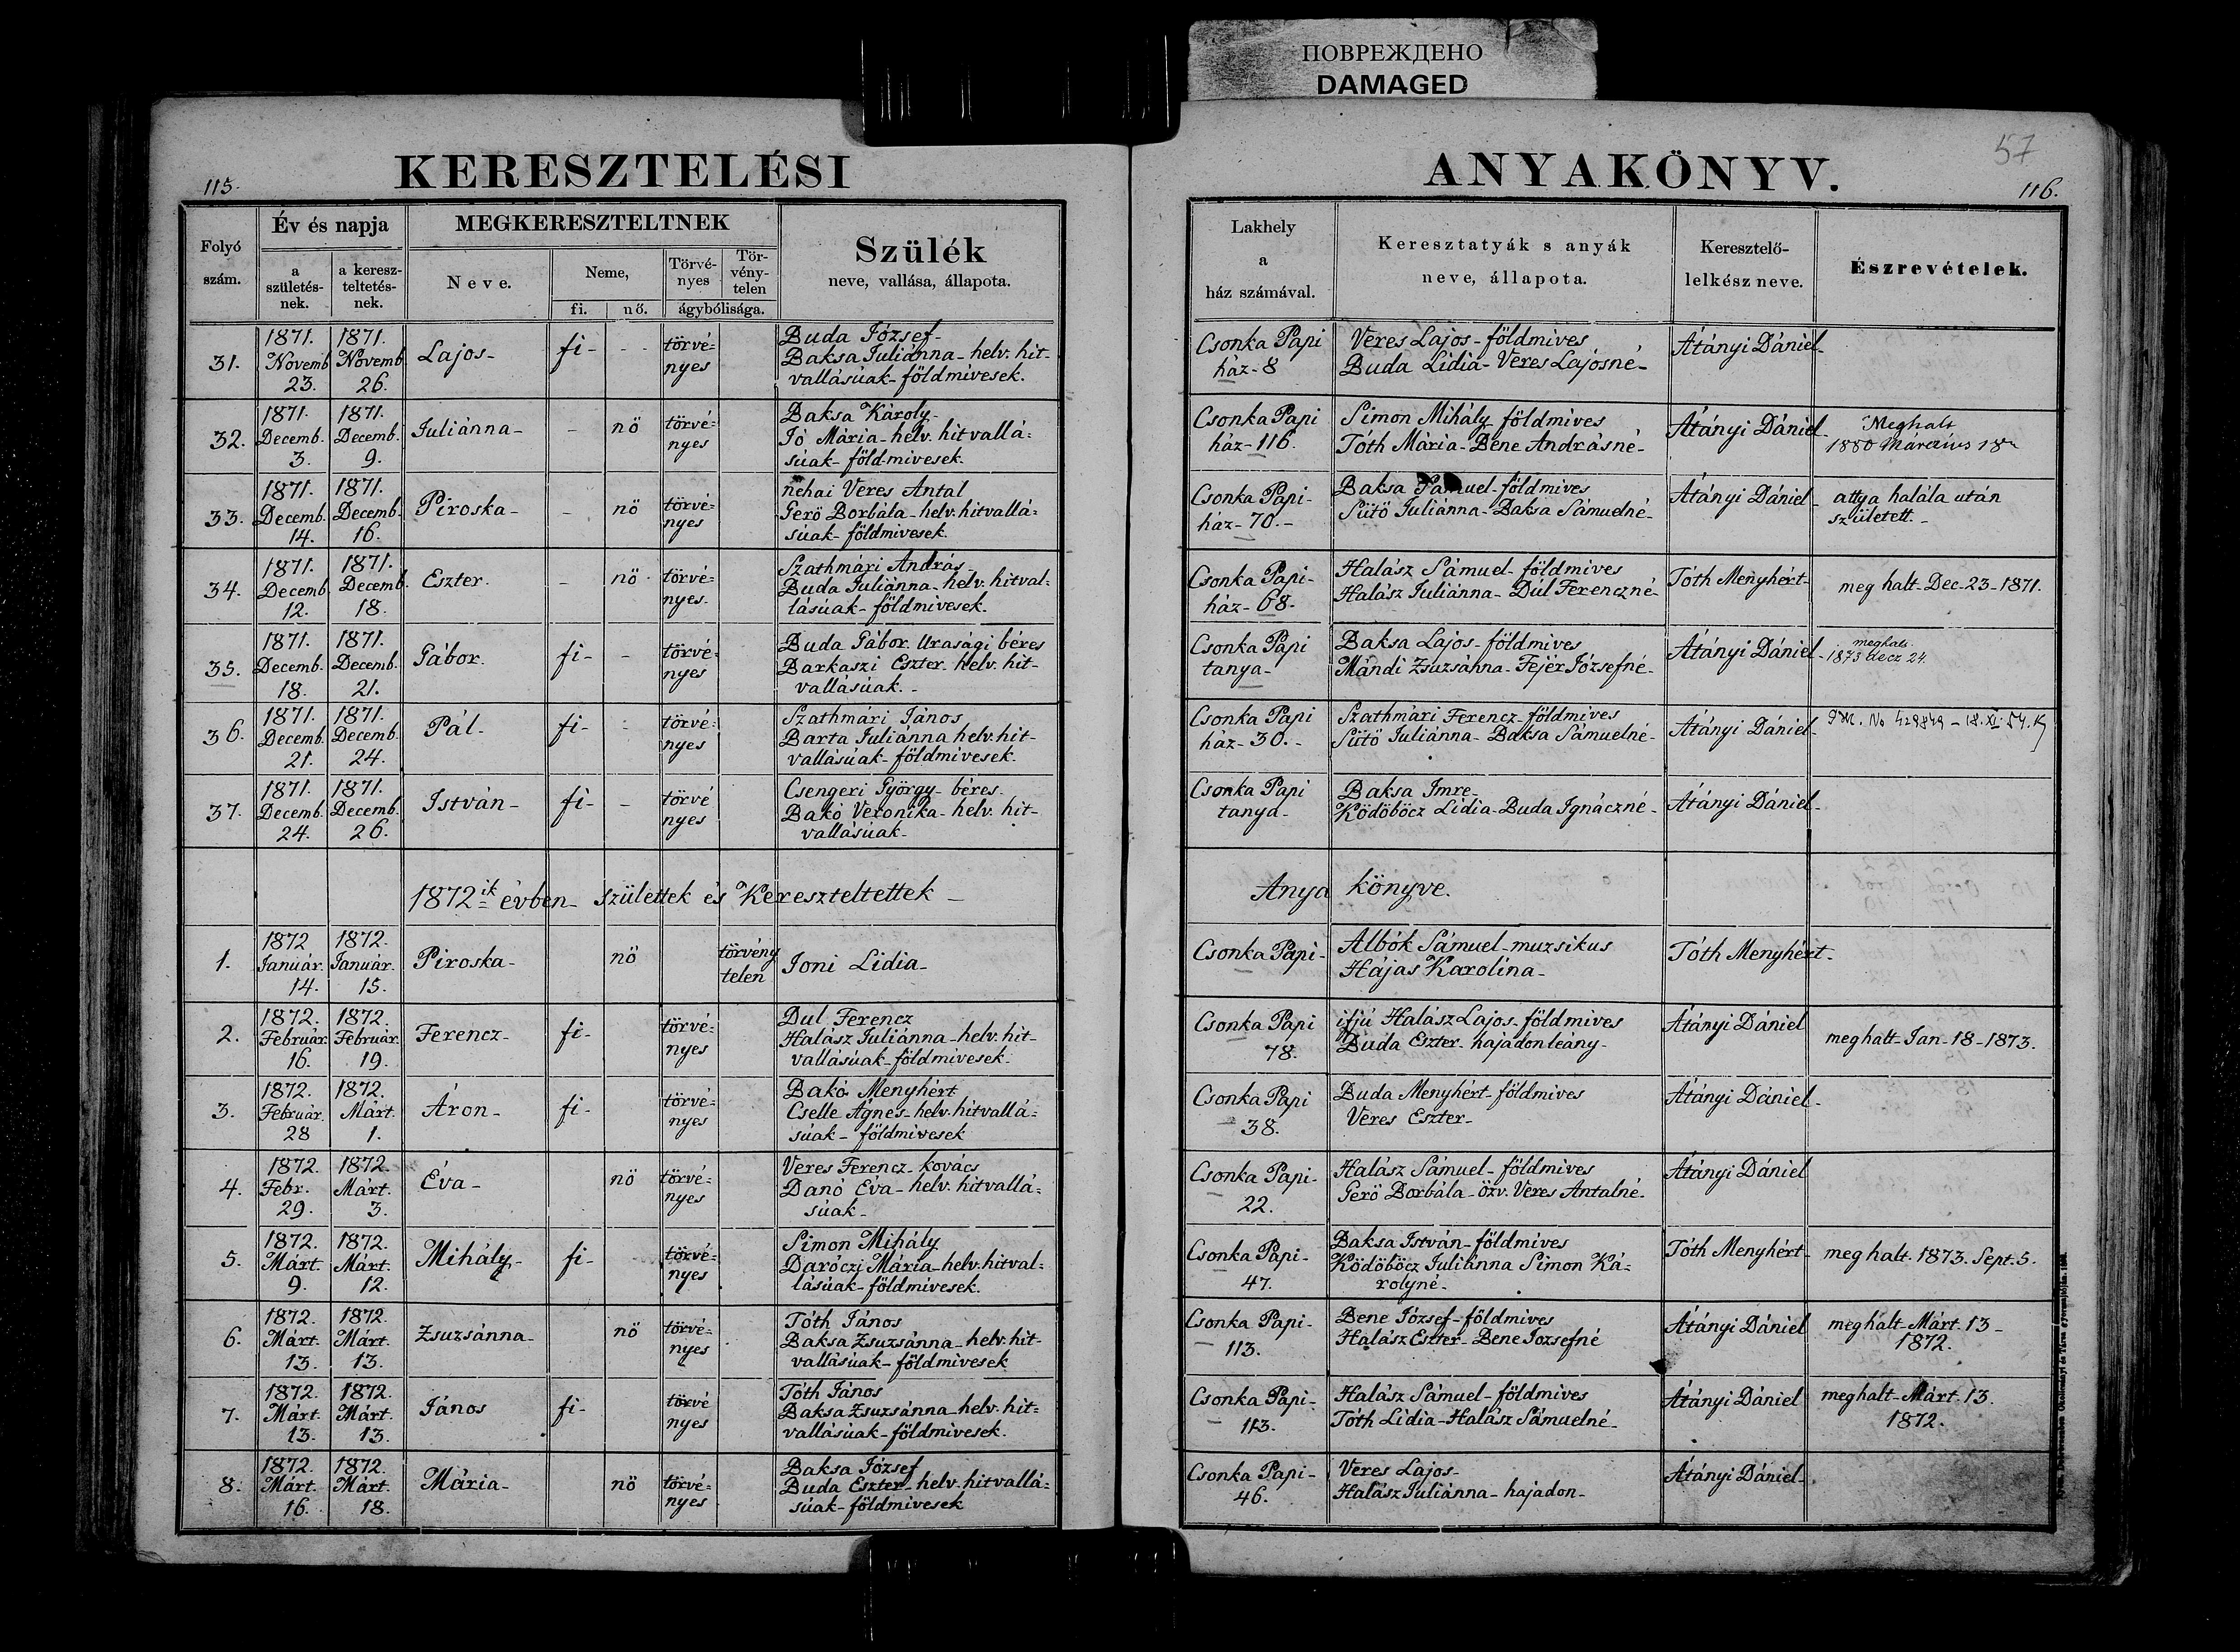 ПОВРЕЖДЕНО
DAMAGED
57
115.
KERESZTELÉSI
ANYAKÖNYV.
116.
Folyó szám.
Év és napja
a születés-nek.
a keresz-teltetés-nek.
MEGKERESZTELTNEK
Neve.
Neme,
fi.
nő.
Törvé-nyes
Tör-vény-telen
ágybólisága.
Szülék
neve, vallása, állapota.
Lakhely
a
ház számával.
Keresztatyák s anyák
neve, állapota.
Keresztelő-
lelkész neve.
Észrevételek.
31. 1871. Novemb 23. 1871. Novemb 26. Lajos- fi- - törvé=nyes
Buda József-
Baksa Juliánna- helv. hit-
vallásúak- földmívesek.
Csonka Papi
ház- 8
Veres Lajos- földmives
Buda Lidia- Veres Lajosné-
Átányi Dániel-
32. 1871. Decemb. 3. 1871. Decemb. 9. Juliánna- - nö törvé=nyes
Baksa Károly-
Jó Mária- helv. hitvallá=
súak- földmivesek.
Csonka Papi
ház- 116.
Simon Mihály földmives
Tóth Mária- Bene Andrásné-
Átányi Dániel-
Meghalt
1880 Március 18
33. 1871. Decemb. 14. 1871. Decemb. 16. Piroska- - nö törvé=nyes
néhai Veres Antal
Gerö Borbála- helv. hitvallá=
súak- földmivesek.
Csonka Papi-
ház- 70.-
Baksa Sámuel- földmives
Sütö Juliánna- Baksa Sámuelné-
Átányi Dániel-
attya halála után
született.-
34. 1871. Decemb 12. 1871. Decemb. 18. Eszter. - nö törvé=nyes.
Szathmári András-
Buda Juliánna- helv. hitval=
lásúak- földmivesek.
Csonka Papi-
ház- 68.
Halász Sámuel- földmives
Halász Juliánna- Dúl Ferenczné-
Tóth Menyhért-
meg halt- Dec-23-1871.
35. 1871. Decemb. 18. 1871. Decemb. 21. Gábor. fi- - törvé=nyes
Buda Gábor. Urasági béres
Barkaszi Eszter. helv. hit-
vallásúak.-
Csonka Papi
tanya-
Baksa Lajos- földmives
Mándi Zsuzsánna- Fejér Józsefné-
Átányi Dániel-
meghalt
1873 decz 24.
36. 1871. Decemb. 21. 1871. Decemb. 24. Pál- fi- - törvé=nyes
Szathmári János
Barta Juliánna helv. hit-
vallásúak- földmivesek.
Csonka Papi
ház- 30.-
Szathmári Ferencz- földmives
Sütö Juliánna- Baksa Sámuelné-
Átányi Dániel-
37. 1871. Decemb. 24. 1871. Decemb. 26. István- fi- - törvé nyes
Csengeri György- béres-
Bakó Veronika- helv. hit-
vallásúak-
Csonka Papi
tanya-
Baksa Imre-
Ködöböcz Lidia- Buda Ignáczné-
Átányi Dániel-
1872ik évben- születtek és Kereszteltettek- Anya könyve.
1. 1872 Január. 14. 1872. Január. 15. Piroska- nö törvény telen
Joni Lidia-
Csonka Papi-
Albók Sámuel- muzsikus
Hájas Karolina-
Tóth Menyhért-
2. 1872. Február. 16. 1872. Február. 19. Ferencz- fi- törvé=nyes
Dul Ferencz
Halász Juliánna- helv. hit-
vallásúak- földmivesek-
Csonka Papi
78.
ifjú Halász Lajos- földmives
Buda Eszter- hajadon leány-
Átányi Dániel
meghalt- Jan-18-1873.
3. 1872. Február. 28 1872. Márt. 1. Áron- fi- törvé=nyes
Bakó Menyhért
Cselle Ágnes- helv. hitvallá=
súak- földmivesek
Csonka Papi
38.
Buda Menyhért- földmives
Veres Eszter-
Átányi Dániel-
4. 1872. Febr. 29. 1872. Márt. 3. Éva- nö törvé=nyes
Veres Ferencz- kovács
Danó Éva- helv. hitvallá=
súak-
Csonka Papi-
22.
Halász Sámuel- földmives
Gerö Borbála- özv. Veres Antalné-
Átányi Dániel
5. 1872. Márt. 9. 1872. Márt. 12. Mihály- fi- törvé=nyes
Simon Mihály
Daróczi Mária- helv. hitval=
lásúak- földmivesek.
Csonka Papi-
47.
Baksa István- földmives
Ködöböcz Juliánna Simon Ká=
rolyné-
Tóth Menyhért-
meg halt. 1873. Sept. 5.
6. 1872. Márt. 13. 1872. Márt. 13. Zsuzsánna- nö törvé=nyes
Tóth János
Baksa Zsuzsánna- helv. hit-
vallásúak- földmivesek
Csonka Papi-
113.
Bene József- földmives
Halász Eszter- Bene Józsefné
Átányi Dániel
meghalt- Márt. 13-
1872.
7. 1872. Márt. 13. 1872. Márt. 13. János fi- törvé nyes
Tóth János
Baksa Zsuzsánna- helv. hit=
vallásúak- földmivesek.
Csonka Papi-
113.
Halász Sámuel- földmives
Tóth Lidia- Halász Sámuelné-
Átányi Dániel
meghalt- Márt. 13.
1872.
8. 1872. Márt. 16. 1872. Márt. 18. Mária- nö törvé=nyes
Baksa József
Buda Eszter- helv. hitvallá=
súak- földmivesek
Csonka Papi-
46.
Veres Lajos-
Halász Juliánna- hajadon-
Átányi Dániel-